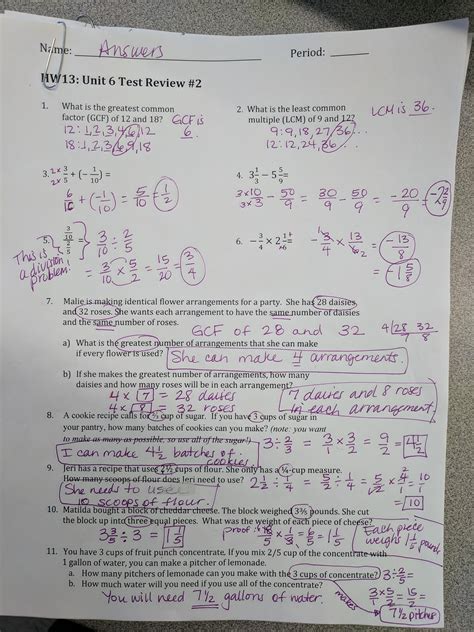 Name: Answers Period:
HW13: Unit 6 Test Review #2
1. What is the greatest common factor (GCF) of 12 and 18? GCF is 6.
12: 1,2,3,4,6,12
18: 1,2,3,6,9,18
2. What is the least common multiple (LCM) of 9 and 12? LCM is 36.
9: 9,18,27,36
12: 12,24,36
3. 3/5 + (-1/10) =
6/10 + (-1/10) = 5/10 = 1/2
4. 3 1/3 - 5 5/9 =
30/9 - 50/9 = -20/9 = -2 2/9
5. This is a division problem.
3/10 ÷ 2/5
= 3/10 × 5/2 = 15/20 = 3/4
6. -13/8
-1 5/8
7. Malie is making identical flower arrangements for a party. She has 28 daisies
and 32 roses. She wants each arrangement to have the same number of daisies
and the same number of roses.
GCF of 28 and 32 4|28 32
7 8
a) What is the greatest number of arrangements that she can make
if every flower is used? She can make 4 arrangements.
b) If she makes the greatest number of arrangements, how many
daisies and how many roses will be in each arrangement?
4 × 7 = 28 daisies
4 × 8 = 32 roses
7 daisies and 8 roses
in each arrangement
8. A cookie recipe calls for 2/3 cup of sugar. If you have 3 cups of sugar in
your pantry, how many batches of cookies can you make? (note: you want
to make as many as possible, so use all of the sugar!)
3 ÷ 2/3 = 3/1 × 3/2 = 9/2 = 4 1/2
I can make 4 1/2 batches of
cookies.
9. Jeri has a recipe that uses 2 1/2 cups of flour. She only has a 1/4-cup measure.
How many scoops of flour does Jeri need to use?
2 1/2 ÷ 1/4 = 5/2 ÷ 1/4 = 5/2 × 4/1 = 10/1
= 10
She needs to use
10 scoops of flour.
10. Matilda bought a block of cheddar cheese. The block weighed 3 3/5 pounds. She cut
the block up into three equal pieces. What was the weight of each piece of cheese?
3 3/5 ÷ 3 = 1 1/5
proof: 18/5 × 1/3 = 6/5 = 1 1/5
Each piece
weighs 1 1/5 pounds.
11. You have 3 cups of fruit punch concentrate. If you mix 2/5 cup of the concentrate with
1 gallon of water, you can make a pitcher of lemonade.
a. How many pitchers of lemonade can you make with the 3 cups of concentrate? 3 ÷ 2/5 =
b. How much water will you need if you use all of the concentrate?
3/1 × 5/2 = 15/2 =
You will need 7 1/2 gallons of water.
makes 7 1/2 pitchers